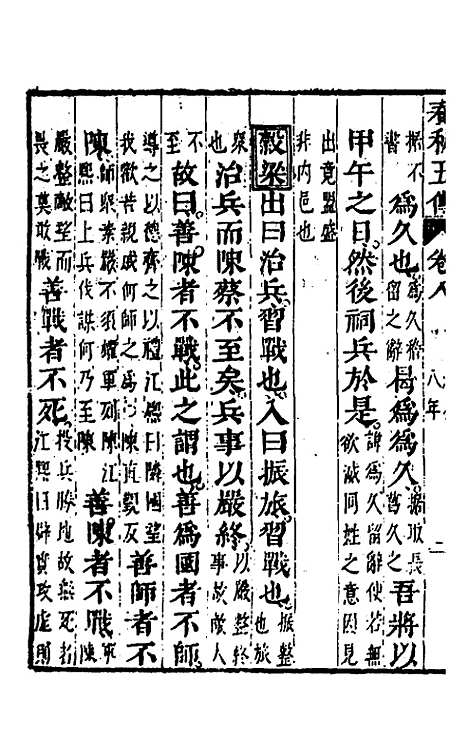 春秋五傳 卷八 八年 二
據不書 爲久也 爲久稽留之辭 曷爲爲久 據取長葛久之 吾將以
甲午之日然後祠兵於是 諱爲久留辭使若無欲滅同姓之意因見
出竟盟盛非内邑也
穀梁 出曰治兵習戰也入曰振旅習戰也 振整也旅
衆也 治兵而陳蔡不至矣兵事以嚴終 以嚴整終事故敵人
不至 故曰善陳者不戰此之謂也善爲國者不師
導之以德齊之以禮江熙曰鄰國望我歡若親戚何師之爲 善師者不
陳 師衆素嚴不須耀軍列陳江熙曰上兵伐謀何乃至陳 善陳者不戰 軍陳
嚴整敵望而畏之莫敢戰 善戰者不死 投兵勝地故無死者江熙曰辟實攻虛則